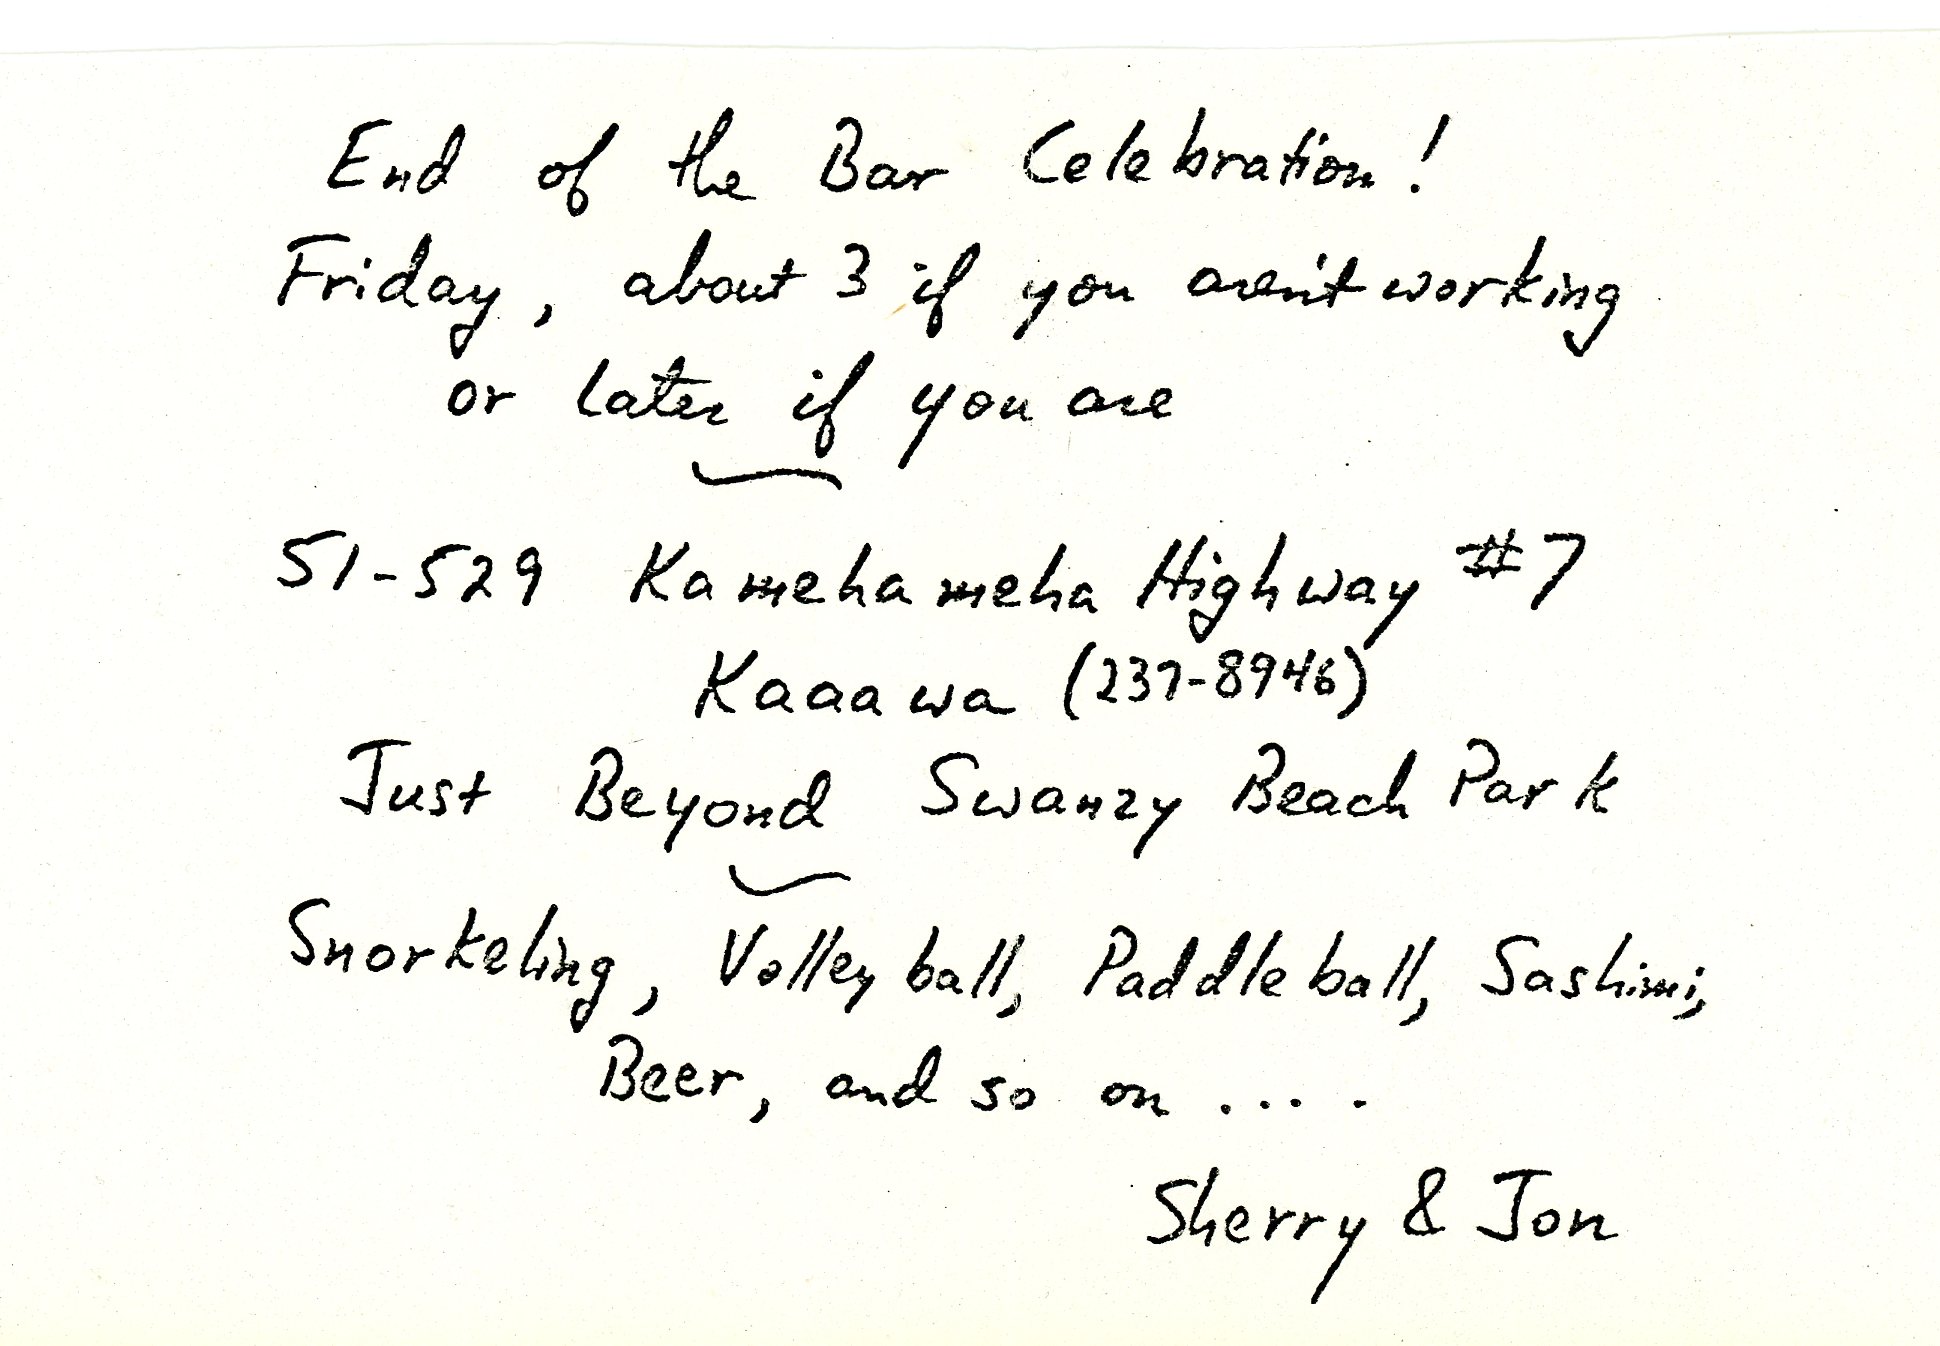 End of the Bar Celebration!
Friday, about 3 if you aren't working
or later if you are
51-529 Kamehameha Highway #7
Kaaawa (237-8946)
Just Beyond Swanzy Beach Park
Snorkeling, Volleyball, Paddleball, Sashimi,
Beer, and so on ....
Sherry & Jon